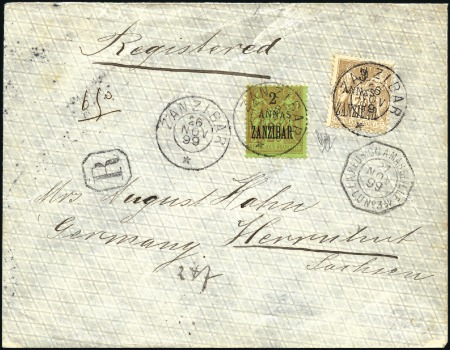 Registered
ZANZIBAR
26
NOV
99
2
ANNAS
ZANZIBAR
ZANZIBAR
ANNAS
ZANZIBAR
ZANZIBAR
NOV
99
R
NOV
99
Mrs August Hahn
Germany, Herrnhut
Sachsen